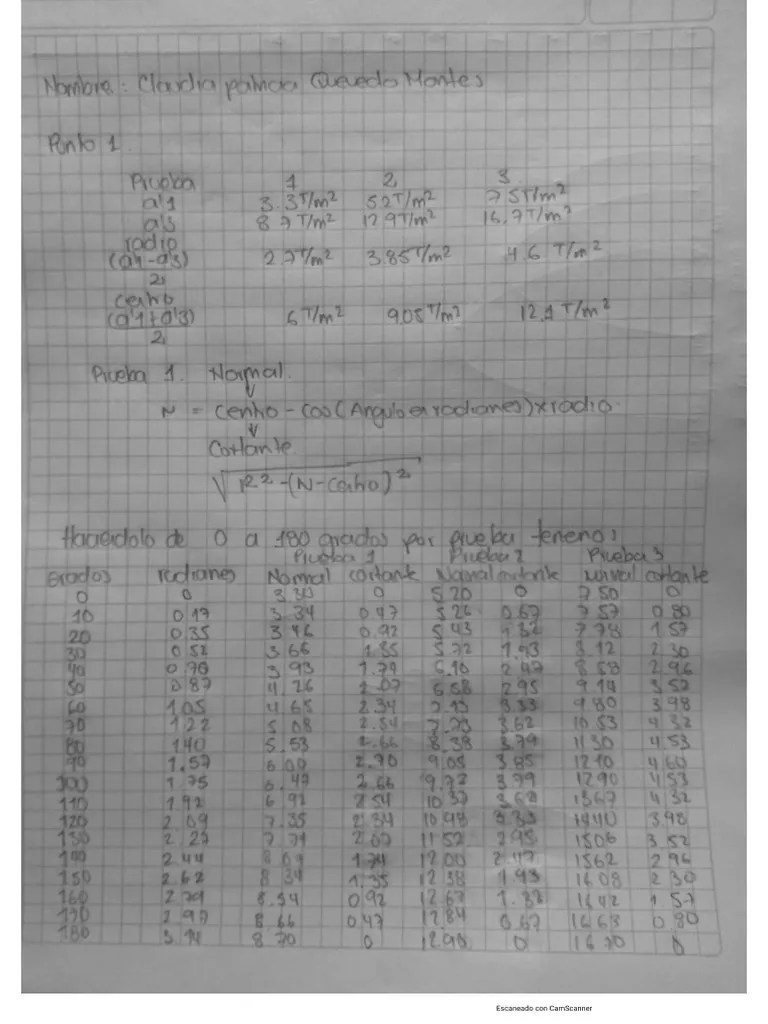 Nombre: Claudia patricia Quevedo Montes
Punto 1
Prueba 1 2 3
a'1 3.3T/m² 5.2T/m² 7.5T/m²
a'3 8.7T/m² 12.9T/m² 16.7T/m²
radio
(a'1-a'3) 2.7T/m² 3.85T/m² 4.6 T/m²
2
Centro
(a'1+a'3) 6T/m² 9.05T/m² 12.1 T/m²
2
Prueba 1. Normal.
N = Centro - Cos(Angulo en radianes)xradio.
Cortante.
√R²-(N-Centro)²
Haciendolo de 0 a 180 grados por prueba tenemos:
Prueba 1 Prueba 2 Prueba 3
Grados radianes Normal cortante Normal cortante Normal cortante
0 0 3.30 0 5.20 0 7.50 0
10 0,17 3.34 0.47 5.26 0.67 7.57 0.80
20 0,35 3.46 0.92 5.43 1.32 7.78 1.57
30 0,52 3.66 1.35 5.72 1.93 8.12 2.30
40 0,70 3.93 1.74 6.10 2.47 8.58 2.96
50 0,87 4.26 2.07 6.58 2.95 9.14 3.52
60 1,05 4.65 2.34 7.13 3.33 9.80 3.98
70 1,22 5.08 2.54 7.73 3.62 10.53 4.32
80 1.40 5.53 2.66 8.38 3.79 11.30 4.53
90 1.57 6.00 2.70 9.05 3.85 12.10 4.60
100 1.75 6.47 2.66 9.72 3.79 12.90 4.53
110 1.92 6.92 2.54 10.37 3.62 13.67 4.32
120 2.09 7.35 2.34 10.98 3.33 14.40 3.98
130 2.27 7.74 2.07 11.52 2.95 15.06 3.52
140 2.44 8.07 1.74 12.00 2.47 15.62 2.96
150 2.62 8.34 1.35 12.38 1.93 16.08 2.30
160 2.79 8.54 0.92 12.67 1.32 16.42 1.57
170 2.97 8.66 0,47 12.84 0.67 16.63 0.80
180 3.14 8.70 0 12.90 0 16.70 0
Escaneado con CamScanner